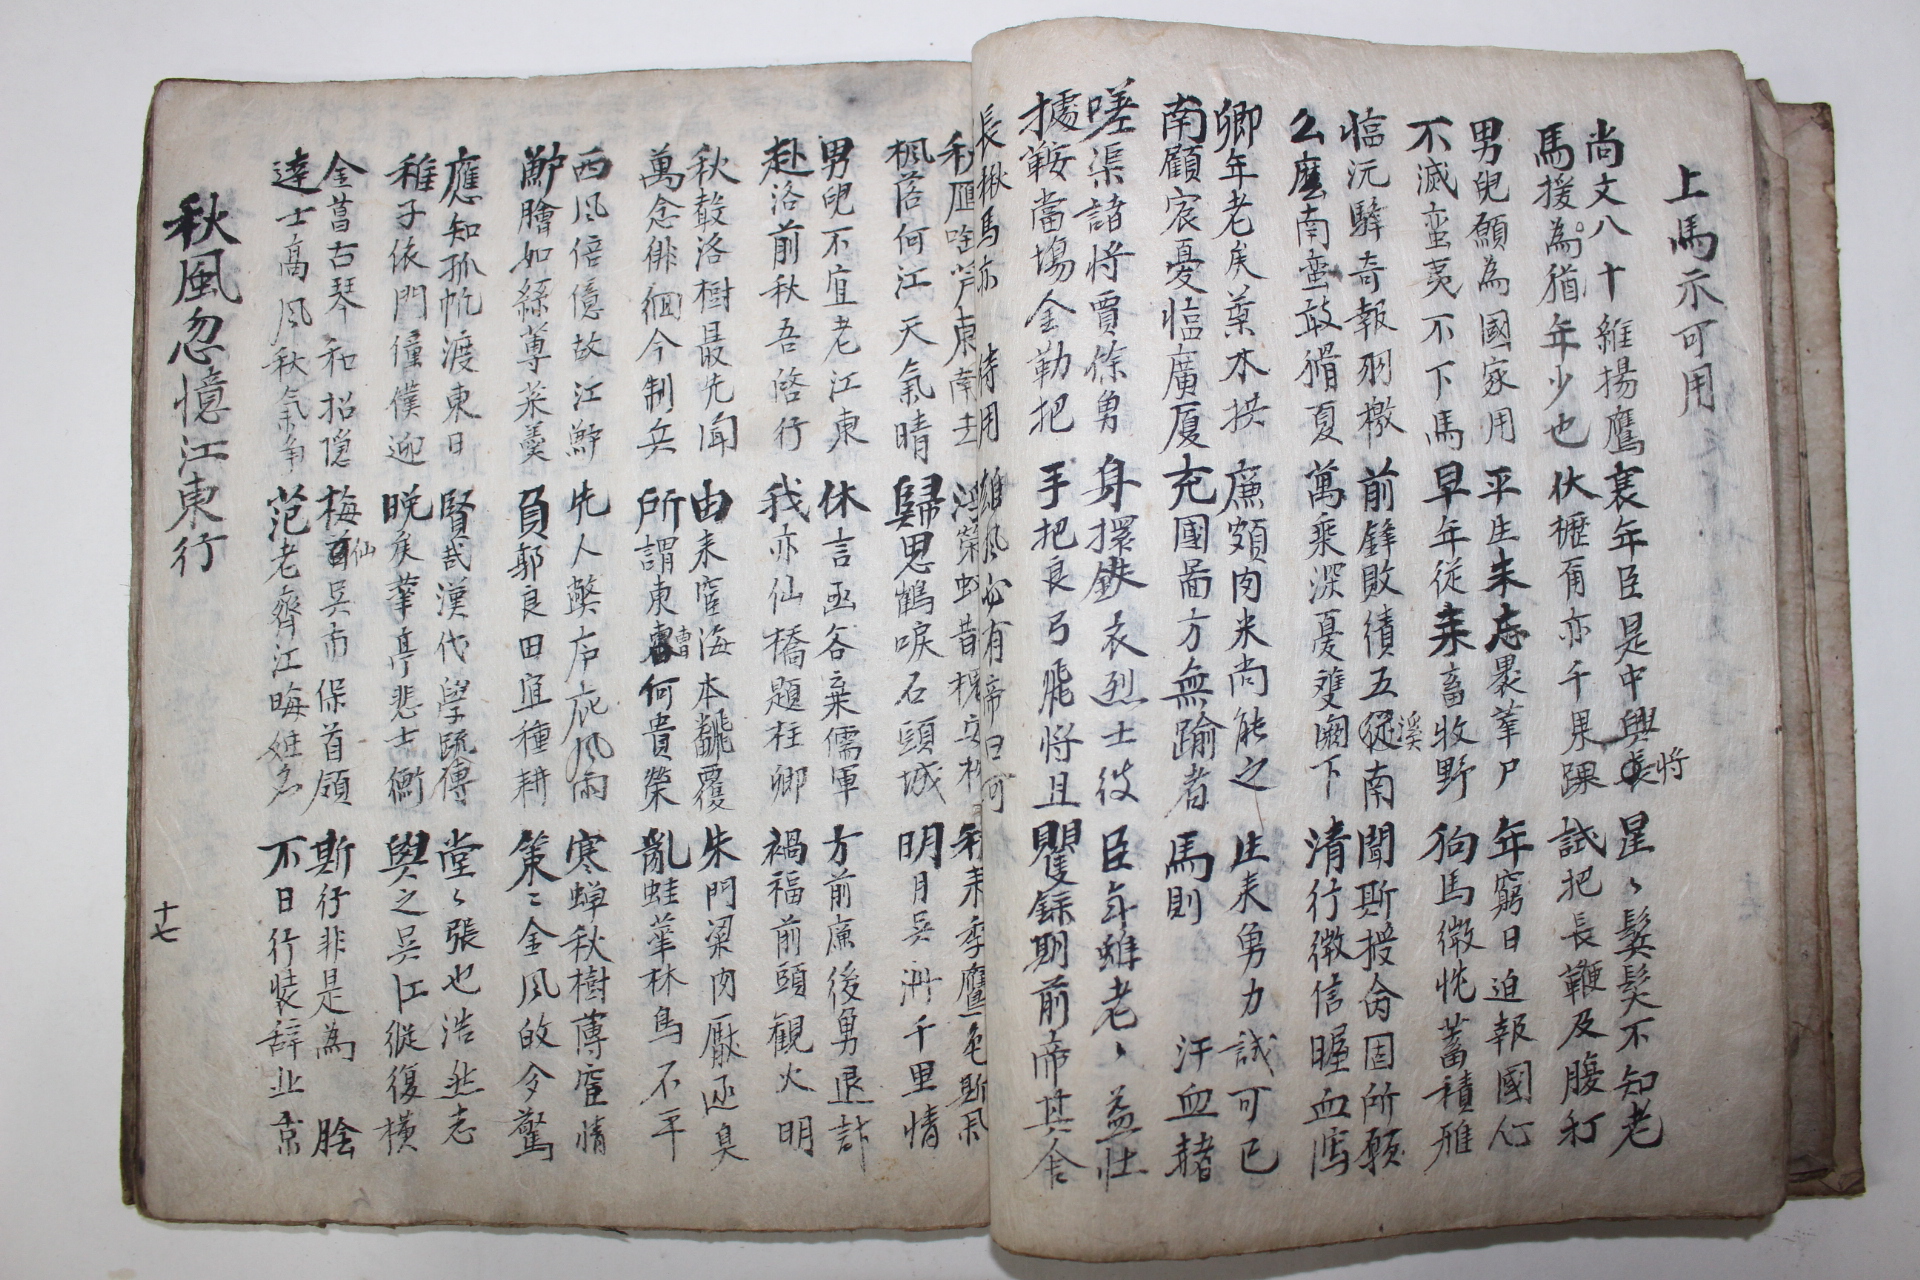 上馬示可用
尚文八十維揚鷹 衰年臣是中興將 星〻鬂髮不知老
馬援為猶年少也 伏櫪有亦千果踝 試把長鞭及腹打
男兒願為國家用 平生未忘裹革尸 年窮日迫報國心
不滅蛮夷不下馬 早年從来畜牧野 狗馬微忱蓄積雅
临沅驛奇報羽檄 前鋒敗績五溪南 聞斯授命固所願
么麽南蛮敢猾夏 萬乘深憂雙闕下 清行徵信腥血瀉
卿年老矣葉木拱 廉頗肉米尚能之 生来勇力誠可已
南顧宸憂临廣厦 充國啚方無踰者 馬則 汗血赭
嗟渠諸将賈餘勇 身擐鉄衣烈士彼 臣年雖老〻益壮
據鞍當場金勒把 手把良弓飛将且 矍鑠期前帝其舍
長楸馬亦 時用 雄风必有帝曰可
秋雁 芦東南去 秋来季鷹
楓落何江天氣晴 歸思鶴唳石頭城 明月吳洲千里情
男兒不宜老江東 休言亟各棄儒軍 方前廉後勇退計
赴洛前秋吾啓行 我亦仙橋題柱卿 禍福前頭觀火明
秋聲洛樹最先聞 由来宦海本飜覆 朱門粱肉厭逐臭
萬念徘徊今制兵 所謂東曹何貴榮 亂蛙葦林鳥不平
西风倍憶故江鮮 先人弊庐庇风雨 寒蝉秋樹薄宦情
鱸膾如絲蓴菜羹 負郭良田宜種耕 策〻金风的令驚
應知孤帆渡東日 賢哉漢代學䟽傅 堂〻張也浩然志
稚子依門僮僕迎 晚矣華亭悲士衡 與之吳江縱復橫
金菖古琴和招隱 梅仙吳市保首領 斯行非是為 膾
達士高风秋氣争 范老齊江晦姓名 不日行裝辞北京
秋風忽憶江東行
十七